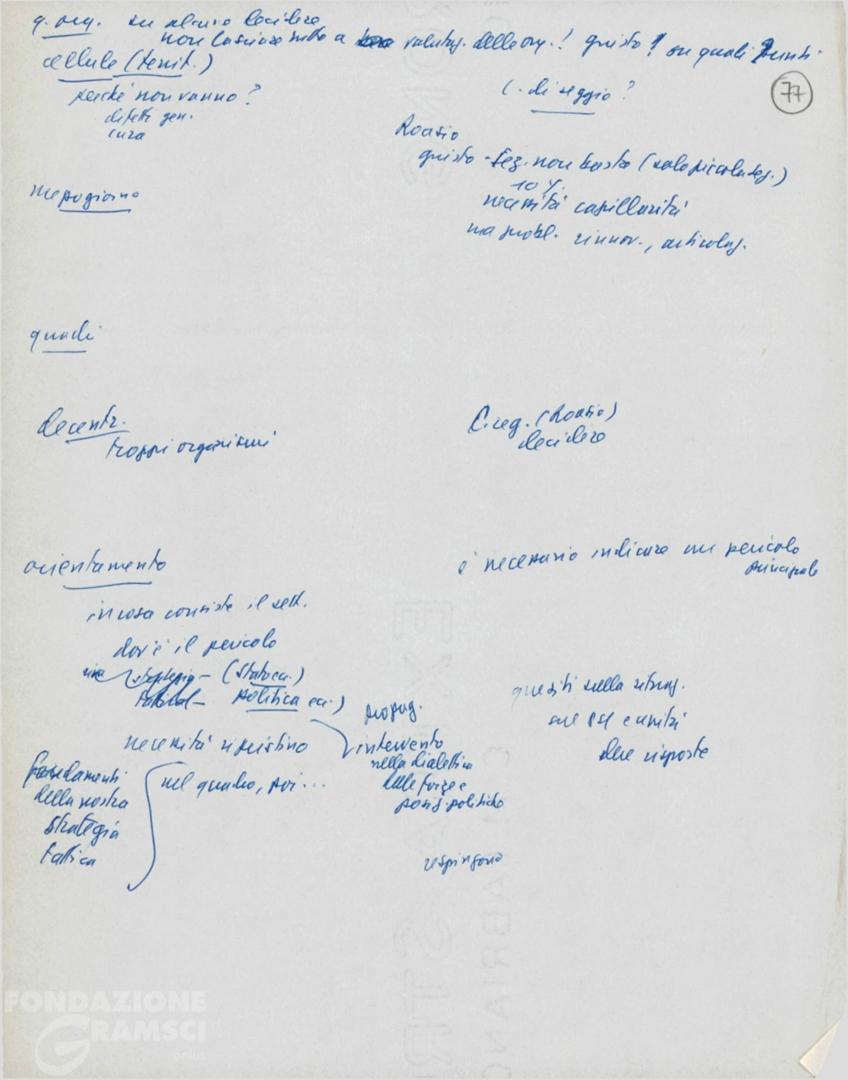 q. org. su alcune decidere
non lasciare tutto a valutaz. delle org.! giusto! su quali punti
cellule (territ.)
perché non vanno?
difetti gen.
cura
C. di seggio?
77
Roasio
giusto - Sez. non basta (solo piccola sez.)
10%
necessità capillarità
ma probl. rinnov., articolaz.
mezzogiorno
quadri
decentr.
troppi organismi
C. reg. (Roasio)
decidere
orientamento
è necessario indicare un pericolo
principale
in cosa consiste il sett.
dov'è il pericolo
(Stato ecc.)
politica ecc.)
propag.
necessità ripristino
intervento
nella dialettica
delle forze e
posiz. politiche
fondamenti
della nostra
strategia
tattica
nel quadro, poi...
respingono
quesiti sulla
due risposte
FONDAZIONE
GRAMSCI
onlus